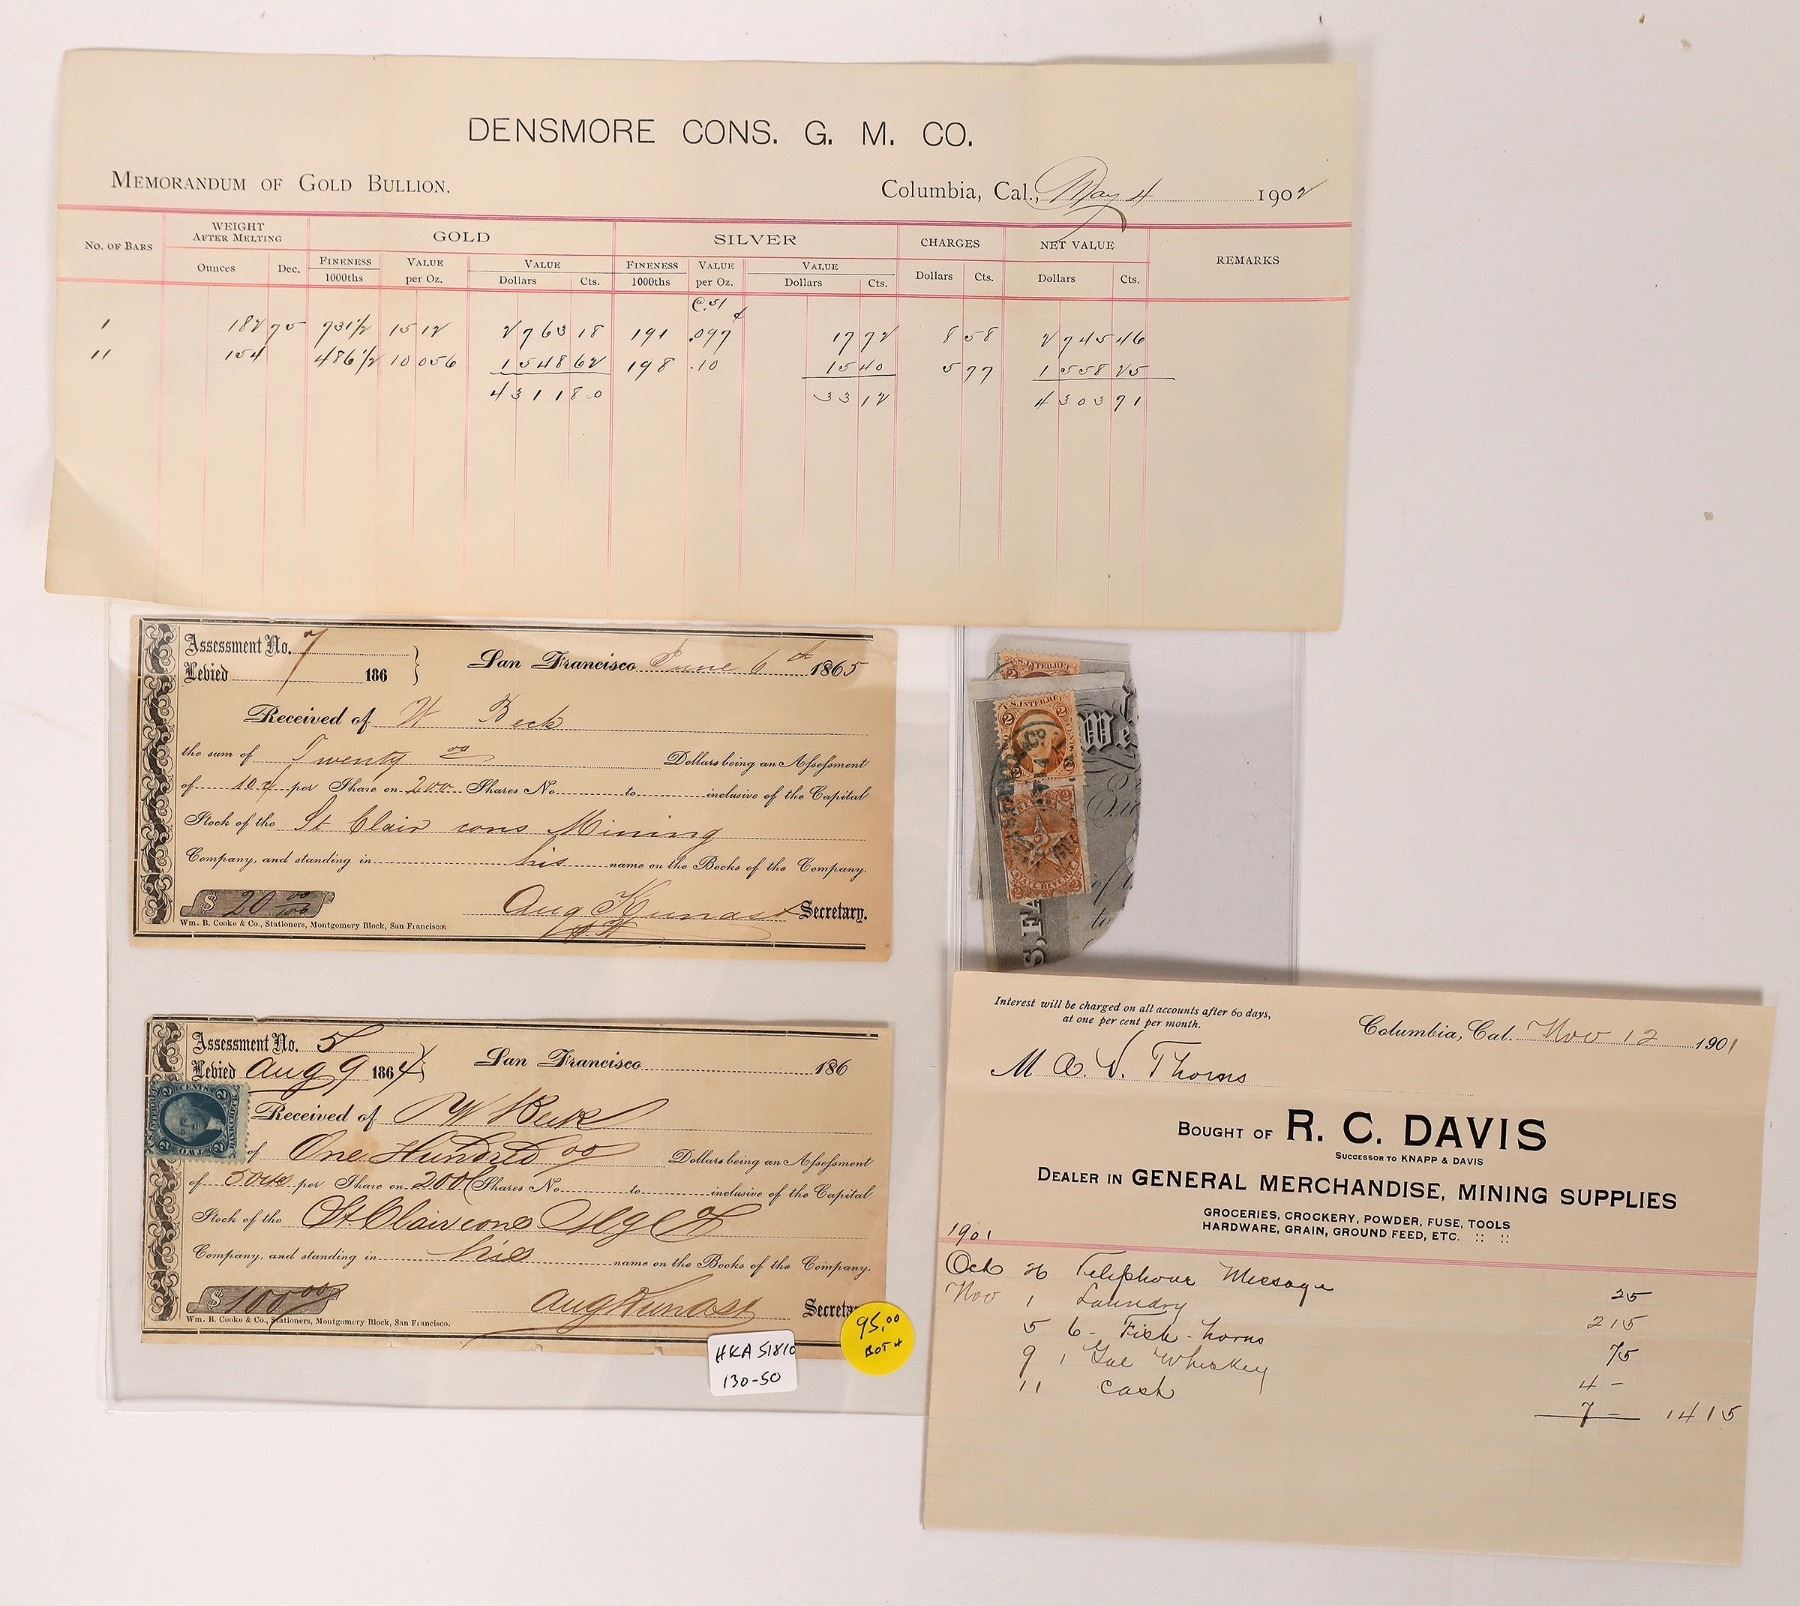 DENSMORE CONS. G. M. CO.
MEMORANDUM OF GOLD BULLION.
Columbia, Cal., May 4 1902
No. OF BARS
WEIGHT AFTER MELTING
GOLD
SILVER
CHARGES
NET VALUE
REMARKS
Ounces Dec. FINENESS 1000ths VALUE per Oz. VALUE Dollars Cts. FINENESS 1000ths VALUE per Oz. VALUE Dollars Cts. Dollars Cts. Dollars Cts.
@ 51 ¢
1 182 75 731 1/2 15 12 2763 18 191 .097 17 72 8 58 2745 46
11 154 486 1/2 10 056 1548 62 198 .10 15 40 5 77 1558 25
4311 80 33 12 4303 71
Assessment No. 7
Levied 186
San Francisco June 6th 1865
Received of W Beck
the sum of Twenty 00 Dollars being an Assessment
of 10¢ per Share on 200 Shares No. to inclusive of the Capital
Stock of the St Clair cons Mining
Company, and standing in his name on the Books of the Company.
$ 20 00/100 Aug Kunast Secretary.
Wm. B. Cooke & Co., Stationers, Montgomery Block, San Francisco.
Assessment No. 5
Levied Aug 9 1864
San Francisco 186
U.S. INTER. REV.
2 CENTS 2
BANK CHECK
TWO
Received of W Beck
of One Hundred 00 Dollars being an Assessment
of 50cts per Share on 200 Shares No. to inclusive of the Capital
Stock of the St Clair cons
Company, and standing in his name on the Books of the Company.
$ 100 00 Aug Kunast Secreta
Wm. B. Cooke & Co., Stationers, Montgomery Block, San Francisco.
HKA 51810
130-50
95.00
BOTH
U.S. INTER. REV.
U.S. INTER. REV.
2 2
We
2
STATE REVENUE
S, FA
Interest will be charged on all accounts after 60 days,
at one per cent per month.
Columbia, Cal. Nov 12 1901
M Thorns
BOUGHT OF R. C. DAVIS
SUCCESSOR TO KNAPP & DAVIS
DEALER IN GENERAL MERCHANDISE, MINING SUPPLIES
GROCERIES, CROCKERY, POWDER, FUSE, TOOLS
HARDWARE, GRAIN, GROUND FEED, ETC. :: ::
1901
Oct 26 Telephone Message 25
Nov 1 Laundry 2 15
5 6 - Fish-horns 75
9 1 Gal Whiskey 4 -
11 Cash 7 - 14 15